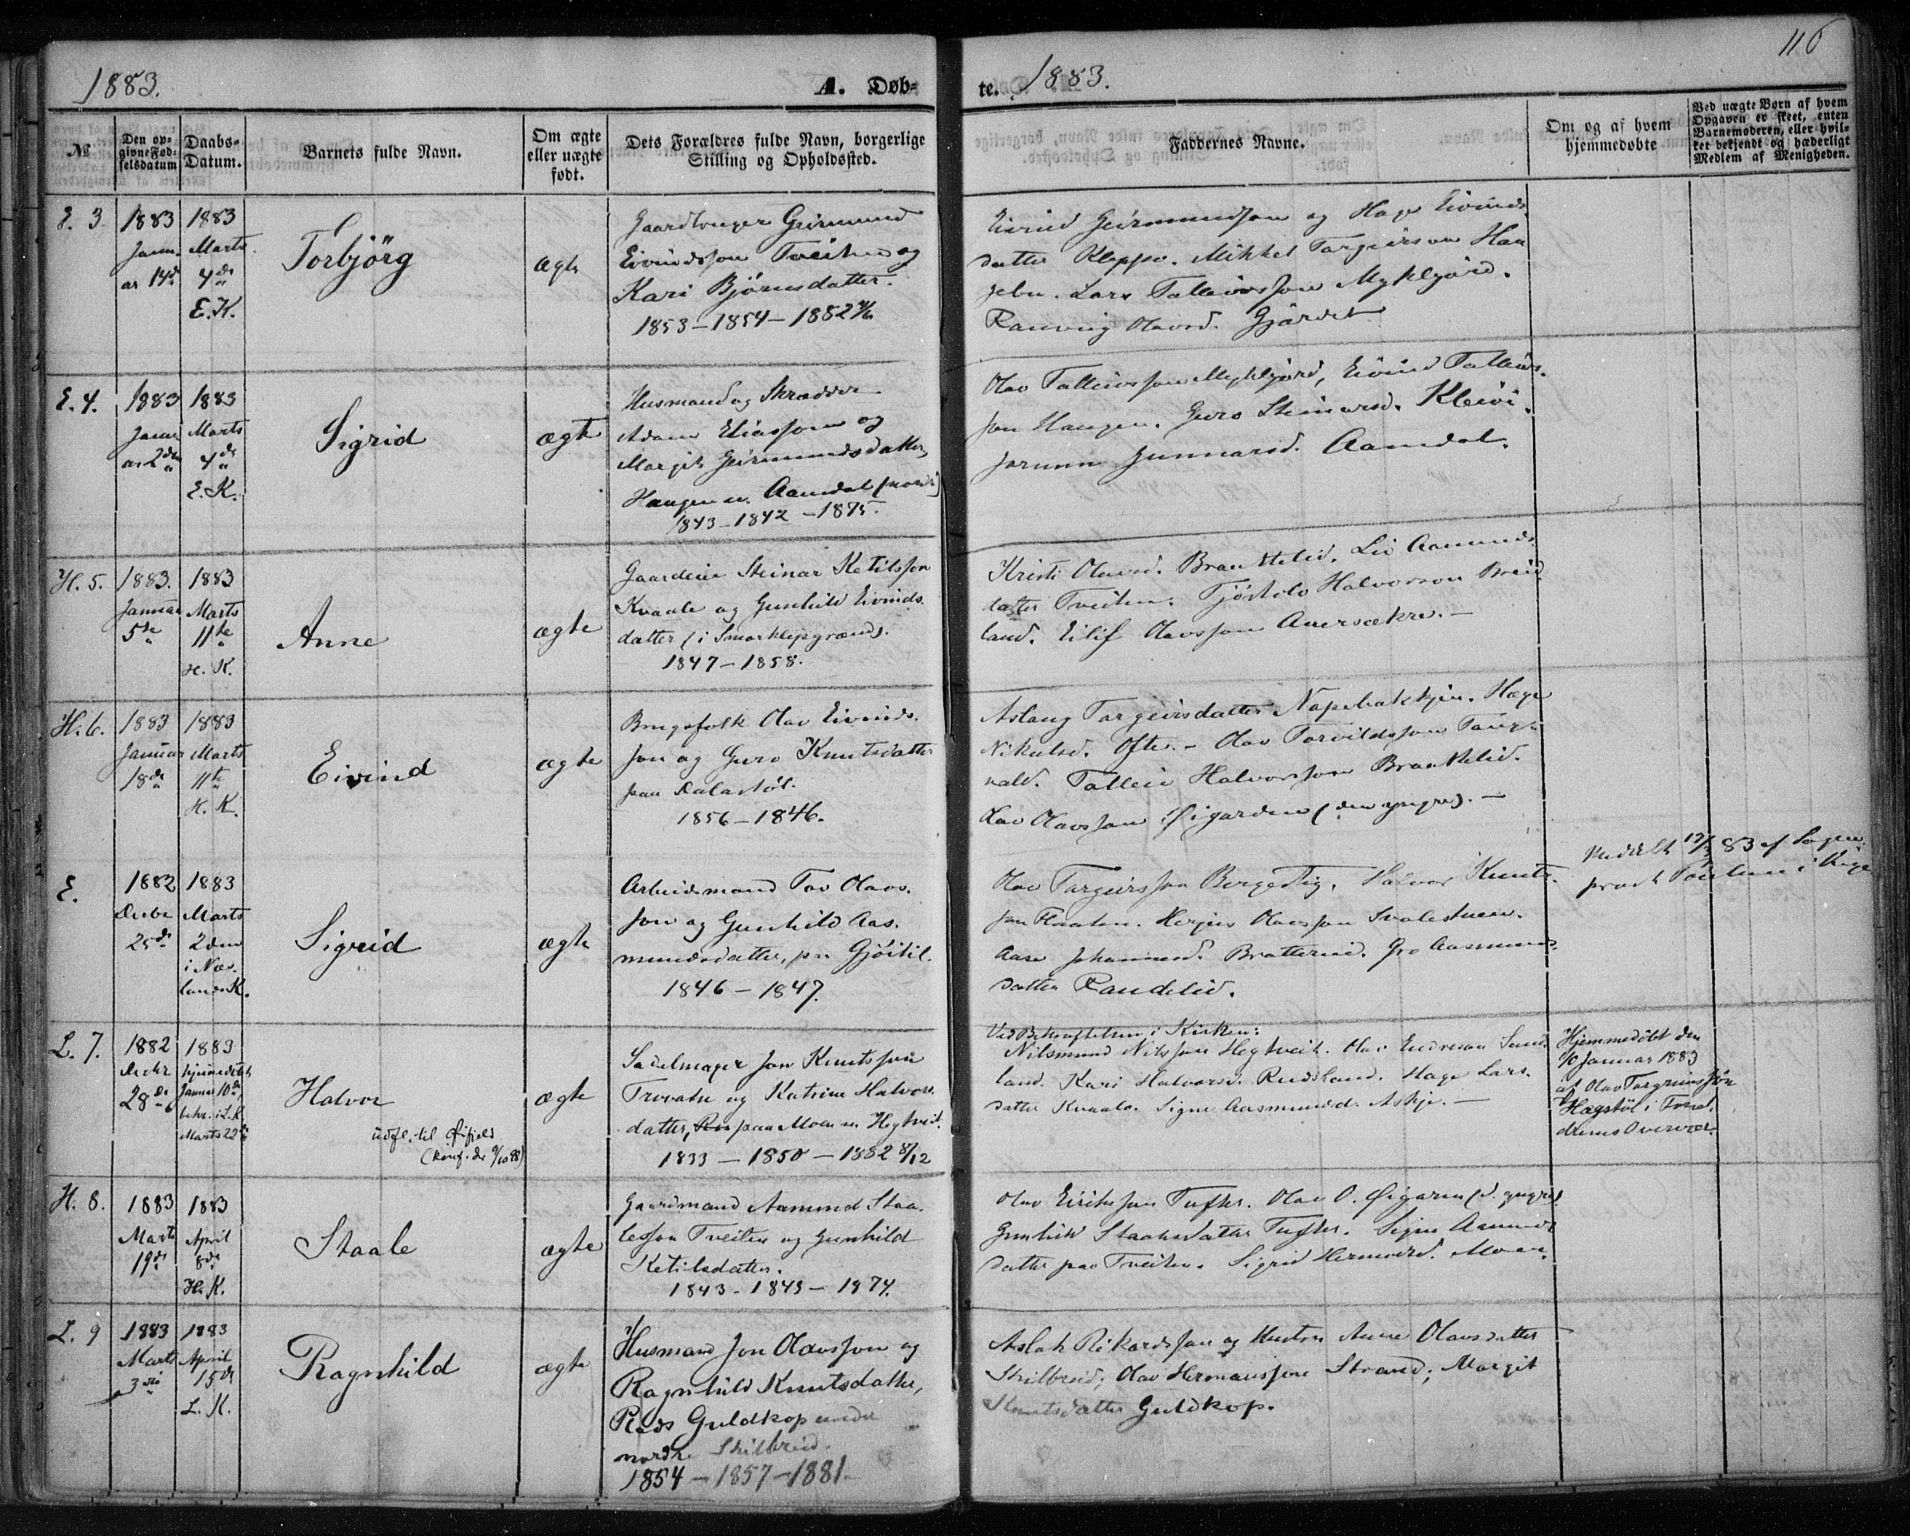 1883.
A. Døb-
te. 1883.
116
№
Den op-
givne Fød-
selsdatum
Daabs-
Datum.
Barnets fulde Navn.
Om ægte
eller uægte
født.
Dets Forældres fulde Navn, borgerlige
Stilling og Opholdssted.
Faddernes Navne.
Om og af hvem
hjemmedøbte
Ved uægte Børn af hvem
Opgaven er skeet, enten
Barnemoderen, eller hvil-
ket bekjendt og hæderligt
Medlem af Menigheden.
E. 3
1883
Janu-
ar 14de
1883
Marts
4de
E. K.
Torbjörg
ægte
Gaardbruger Geirmund
Eivindsson Tveiten og
Kari Bjørnsdatter.
1853 – 1854 – 1882
Eivind Geirmundson og Hæge Eivinds-
datter Kleppo. Mikkel Targeirson Hau
gebu. Lars Talleivsson Mykljørd.
Ranveig Olavsd. Gjårdet
E. 4.
1883
Janu
ar 2den
1883
Marts
4de
E. K.
Sigrid
ægte
Husmand og Skrædder
Adam Eliasson og
Margit Geirmundsdatter,
Haugen u. Aamdal (nordr)
1843 – 1842 – 1875.
Olav Talleivsson Mykljord, Eivind Talleivs-
son Haugen. Guro Steinarsd. Kleivi.
Jorunn Gunnarsd. Aamdal.
H. 5.
1883.
Januar
5te
1883
Marts
11te
H. K.
Anne
ægte
Gaardeier Steinar Ketilsson
Kvaale og Gunhild Eivinds-
datter (i Smørklepgrænd).
1847 – 1858.
Kristi Olavsd. Brankelid. Liv Aamunds
datter Tveiten. Tjöstolv Halvorson Breid
land. Eilif Olavsson Aversækre. –
H. 6.
1883
Januar
18de
1883
Marts
11te
H. K.
Eivind
ægte
Brugsfolk Olav Eivinds-
son og Guro Knutsdatter
paa Dalastøl.
1856 – 1846.
Aslaug Targeirsdatter Napebakkjen. Hæge
Nikulsd. Ofte. – Olav Torvildsson Tang-
vald. Talleiv Halvorsson Brankelid.
Olav Olavsson Øigarden (den yngre). –
E.
1882
Decbr
25de
1883
Marts
2den
i Næs-
land K.
Sigrid
ægte
Arbeidsmand Tov Olavs-
son og Gunhild Aas-
mundsdatter, pa Gjøitil.
1846 – 1847.
Olav Targeirsson Bergestig, Halvor Knuts-
son Flaaten. Hergus Olavsson Svalestuen.
Aase Johannesd. Bratterud. Gro Aasmunds
datter Randelid.
Meddelt 12/3 83 af Sogne-
præst
L. 7.
1882
Decbr
28de
1883
hjemmedøbt
Januar 10de,
bekr. i L. K.
Marts 22de
Halvor
udfl. til Øifjeld
(konf. der 9/10 98)
ægte
Sadelmager Jon Knutsson
Trovatn og Katrine Halvors-
datter, paa Moen u. Hegtveit.
1833 – 1850 – 1882 8/12
Ved Bekræftelsen i Kirken:
Nilsmund Nilsson Hegtveit. Olav Endreson Sund
land. Kari Halvorsd. Rudsland. Hæge Lars-
datter Kvaale. Signe Aasmundsd. Askje. –
Hjemmedøbt den
10 Januar 1883
af Olav Targrimsson
Hægstöl i Foreld
drenes Overvær.
H. 8.
1883
Marts
19de
1883
April
8de
H. K.
Staale
ægte
Gaardmand Aamund Staa-
lesson Tveiten og Gunhild
Ketilsdatter.
1843 – 1849 – 1874.
Olav Eiriksson Tufte. Olav O. Øigaren (d. yngre)
Gunhild Staalesdatter Tufte. Signe Aamunds
datter paa Tveiten. Sigrid Hermodsd. Moen.
L. 9
1883
Marts
3die
1883
April
15de
L. K.
Ragnhild
ægte
Husmand Jon Olavsson og
Ragnhild Knutsdatter,
Plads Guldkop under
nordre Skilbreid.
1854 – 1857 – 1881.
Aslak Rikardsson og Hustru Anne Olavsdatter
Skilbreid; Olav Hermansson Strand; Margit
Knutsdatter Guldkop.